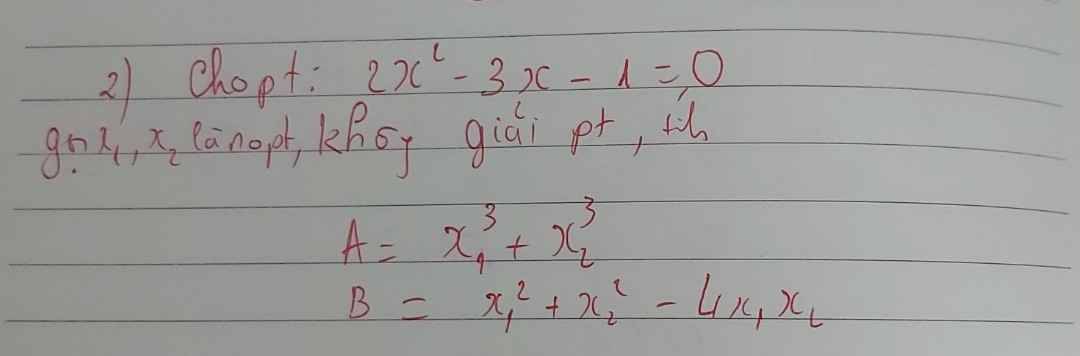 2) Cho pt: 2x² - 3x - 1 = 0
gọi x₁, x₂ là nopt, không giải pt, tính
A = x₁³ + x₂³
B = x₁² + x₂² - 4x₁x₂